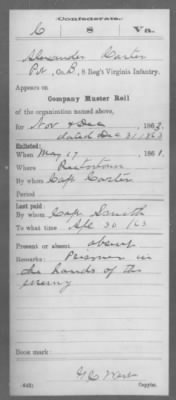 Confederate.
C 8 Va.
Alexander Carter
Pvt, Co. D, 8 Reg't Virginia Infantry.
Appears on
Company Muster Roll
of the organization named above,
for Nov & Dec, 1863.
dated Dec 31 1863
Enlisted:
When May 17, 1861.
Where
By whom Capt Carter
Period
Last paid:
By whom Capt Smith
To what time Apl 30/63
Present or absent absent
Remarks: Prisoner in
the hands of the
enemy
Book mark:
(642)
Copyist.